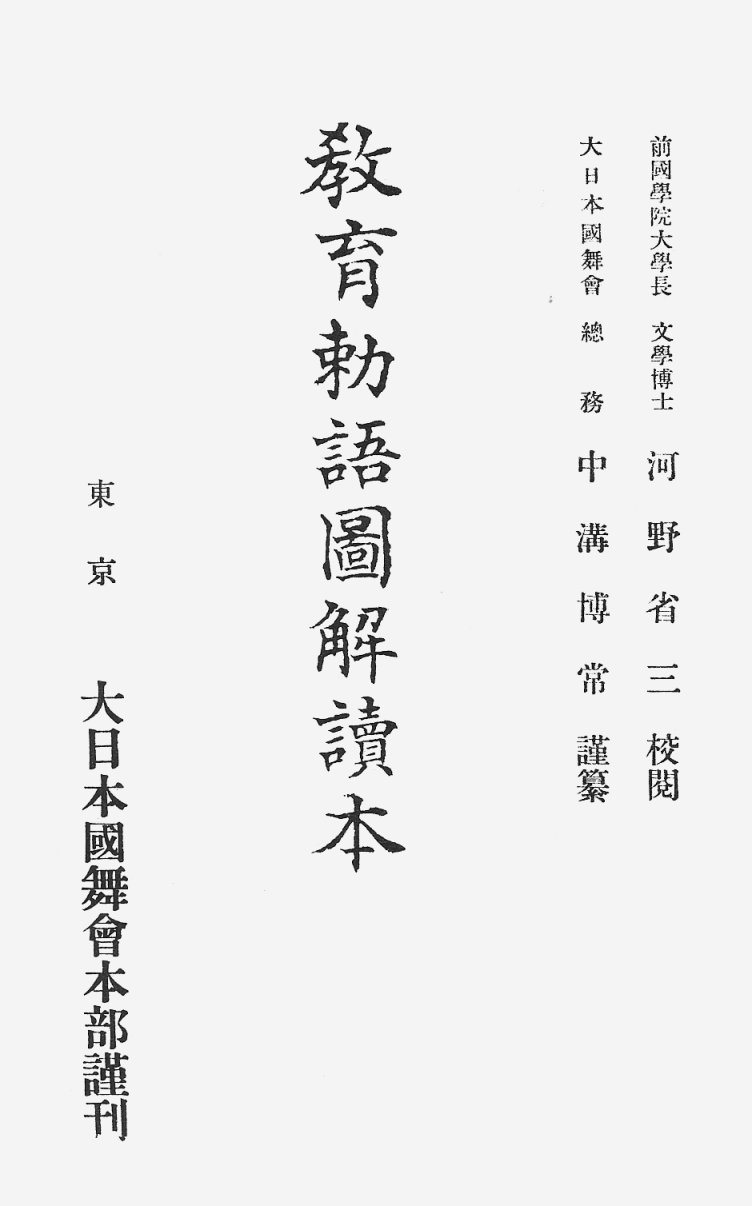 前國學院大學長 文學博士 河野省三 校閲
大日本國舞會 總務 中溝博常 謹纂
敎育勅語圖解讀本
東京 大日本國舞會本部謹刊